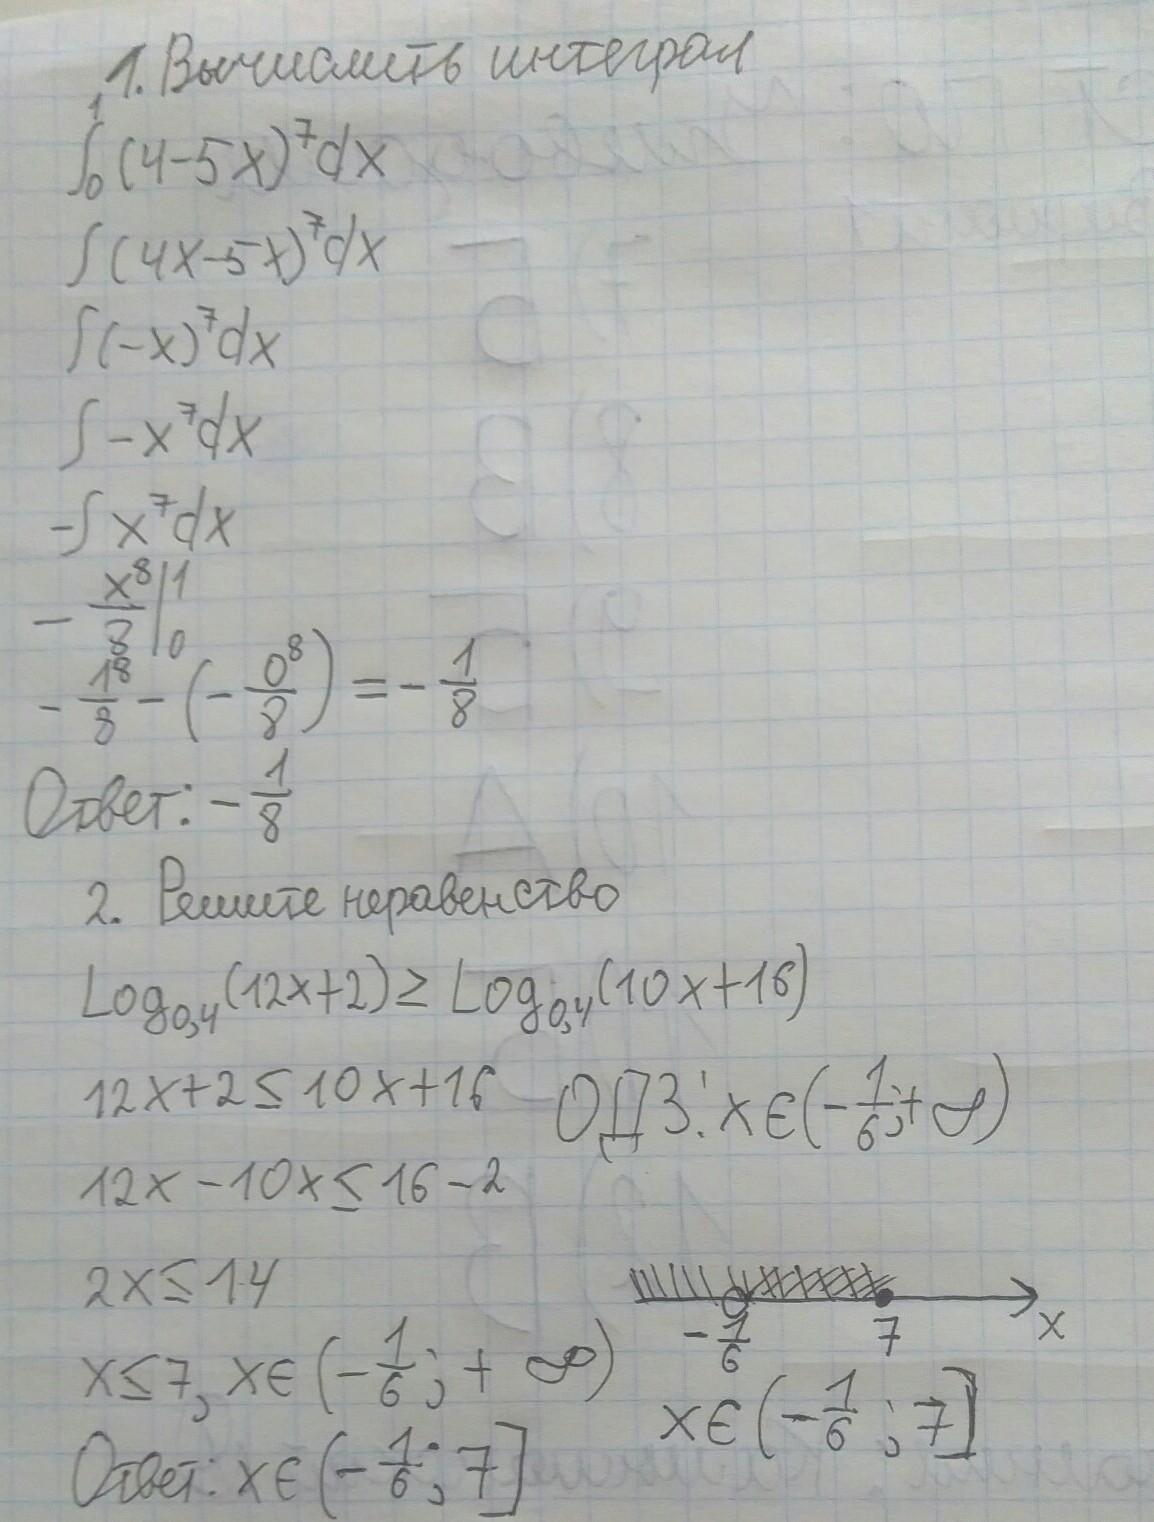 1. Вычислить интеграл
∫₀¹(4-5x)⁷dx
∫(4x-5x)⁷dx
∫(-x)⁷dx
∫-x⁷dx
-∫x⁷dx
- x⁸/8 |₀¹
- 1⁸/8 - (- 0⁸/8) = - 1/8
Ответ: - 1/8
2. Решите неравенство
Log₀,₄(12x+2) ≥ Log₀,₄(10x+16)
12x+2 ≤ 10x+16 ОДЗ: x∈(- 1/6; +∞)
12x-10x ≤ 16-2
2x ≤ 14
- 1/6 7 x
x ≤ 7, x∈(- 1/6; +∞)
x∈(- 1/6; 7]
Ответ: x∈(- 1/6; 7]